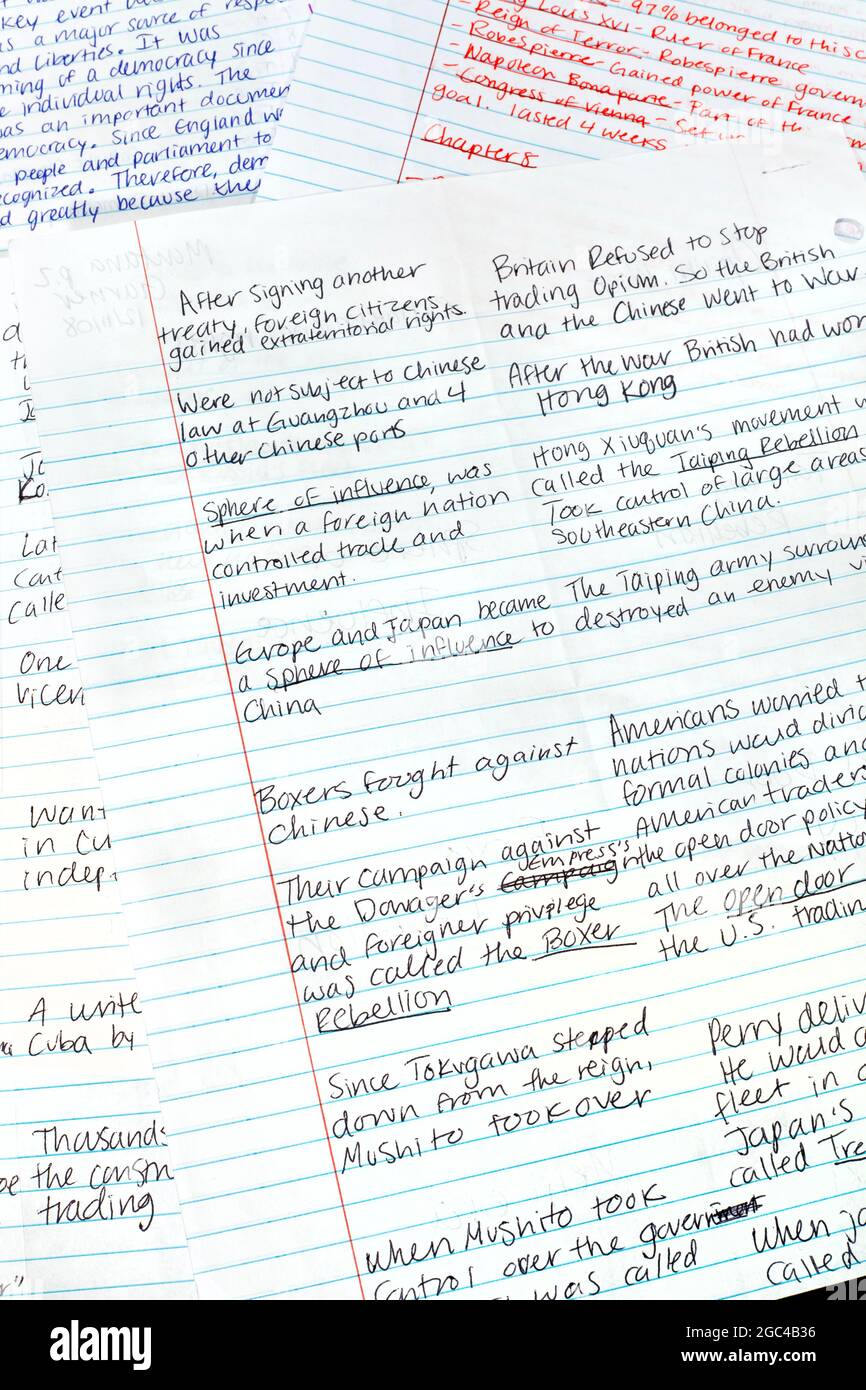 key event
as a major source of
nd liberties. It was
ning of a democracy since
e individual rights. The
as an important documen
emocracy. Since England w
people and parliament to
ecognized. Therefore, dem
d greatly because the
Louis XVI - Ruer of France
- 97% belonged to this c
- Reign of Terror - Robespierre govern
- Robespierre Gained power of France
- Napoleon Bonaparte - Part of th
- Congress of Vienna - Set
goal. lasted 4 weeks
Chapter 8
After signing another
treaty, foreign citizens
gained extraterritorial rights.
Were not subject to Chinese
law at Guangzhou and 4
other Chinese ports
Sphere of influence, was
when a foreign nation
controlled trade and
investment.
Europe and Japan became
a sphere of influence to
China
Boxers fought against
Chinese.
Their campaign against
the Dowager's Empress's
and foreigner privilege
was called the Boxer
Rebellion
Since Tokugawa stepped
down from the reign,
Mushito took over
When Mushito took
control over the government
was called
Britain Refused to stop
trading Opium. So the British
and the Chinese went to War
After the war British had won
Hong Kong
Hong Xiuquan's movement w
called the Taiping Rebellion
Took control of large areas
Southeastern China.
The Taiping army surroun
destroyed an enemy vi
Americans worried t
nations would divid
formal colonies and
American trader
In the open door policy
all over the Natio
The open door
the U.S. tradin
Perry deliv
He would a
fleet in
Japan's
called Tre
When Ja
called
Lat
Cont
Calle
One
vicer
Want
in Cu
indep
A write
Cuba by
Thousands
the constr
trading
alamy
Image ID: 2GC4B36
www.alamy.com